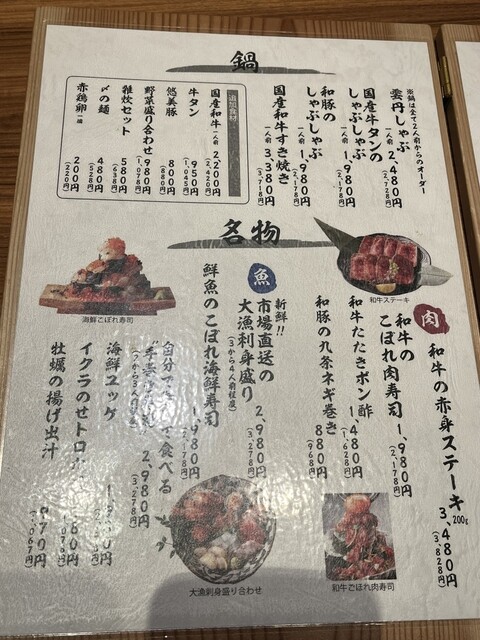 鍋
※鍋は全て2人前からのオーダー
雲丹しゃぶ 一人前 2,480円
(2,728円)
国産牛タンのしゃぶしゃぶ 一人前 1,980円
(2,178円)
和豚のしゃぶしゃぶ 一人前 1,980円
(2,178円)
国産和牛すき焼き 一人前 3,380円
(3,718円)
追加食材
国産和牛 一人前 2,200円
(2,420円)
牛タン 950円
(1,045円)
悠美豚 800円
(880円)
野菜盛り合わせ 980円
(1,078円)
雑炊セット 580円
(638円)
〆の麺 480円
(528円)
赤鶏卵 一個 200円
(220円)
名物
和牛ステーキ
肉
和牛の赤身ステーキ 200g 3,480円
(3,828円)
和牛のこぼれ肉寿司 1,980円
(2,178円)
和牛たたきポン酢 1,480円
(1,628円)
和豚の九条ネギ巻き 880円
(968円)
魚
新鮮!!
市場直送の
大漁刺身盛り 2,980円
(3から4人前程度)
(3,278円)
鮮魚のこぼれ海鮮寿司 1,980円
(2,178円)
海鮮こぼれ寿司
食べる
2,980円
(3,278円)
海鮮ユッケ
イクラのせトロ
牡蠣の揚げ出汁 970円
(1,067円)
大漁刺身盛り合わせ
和牛こぼれ肉寿司